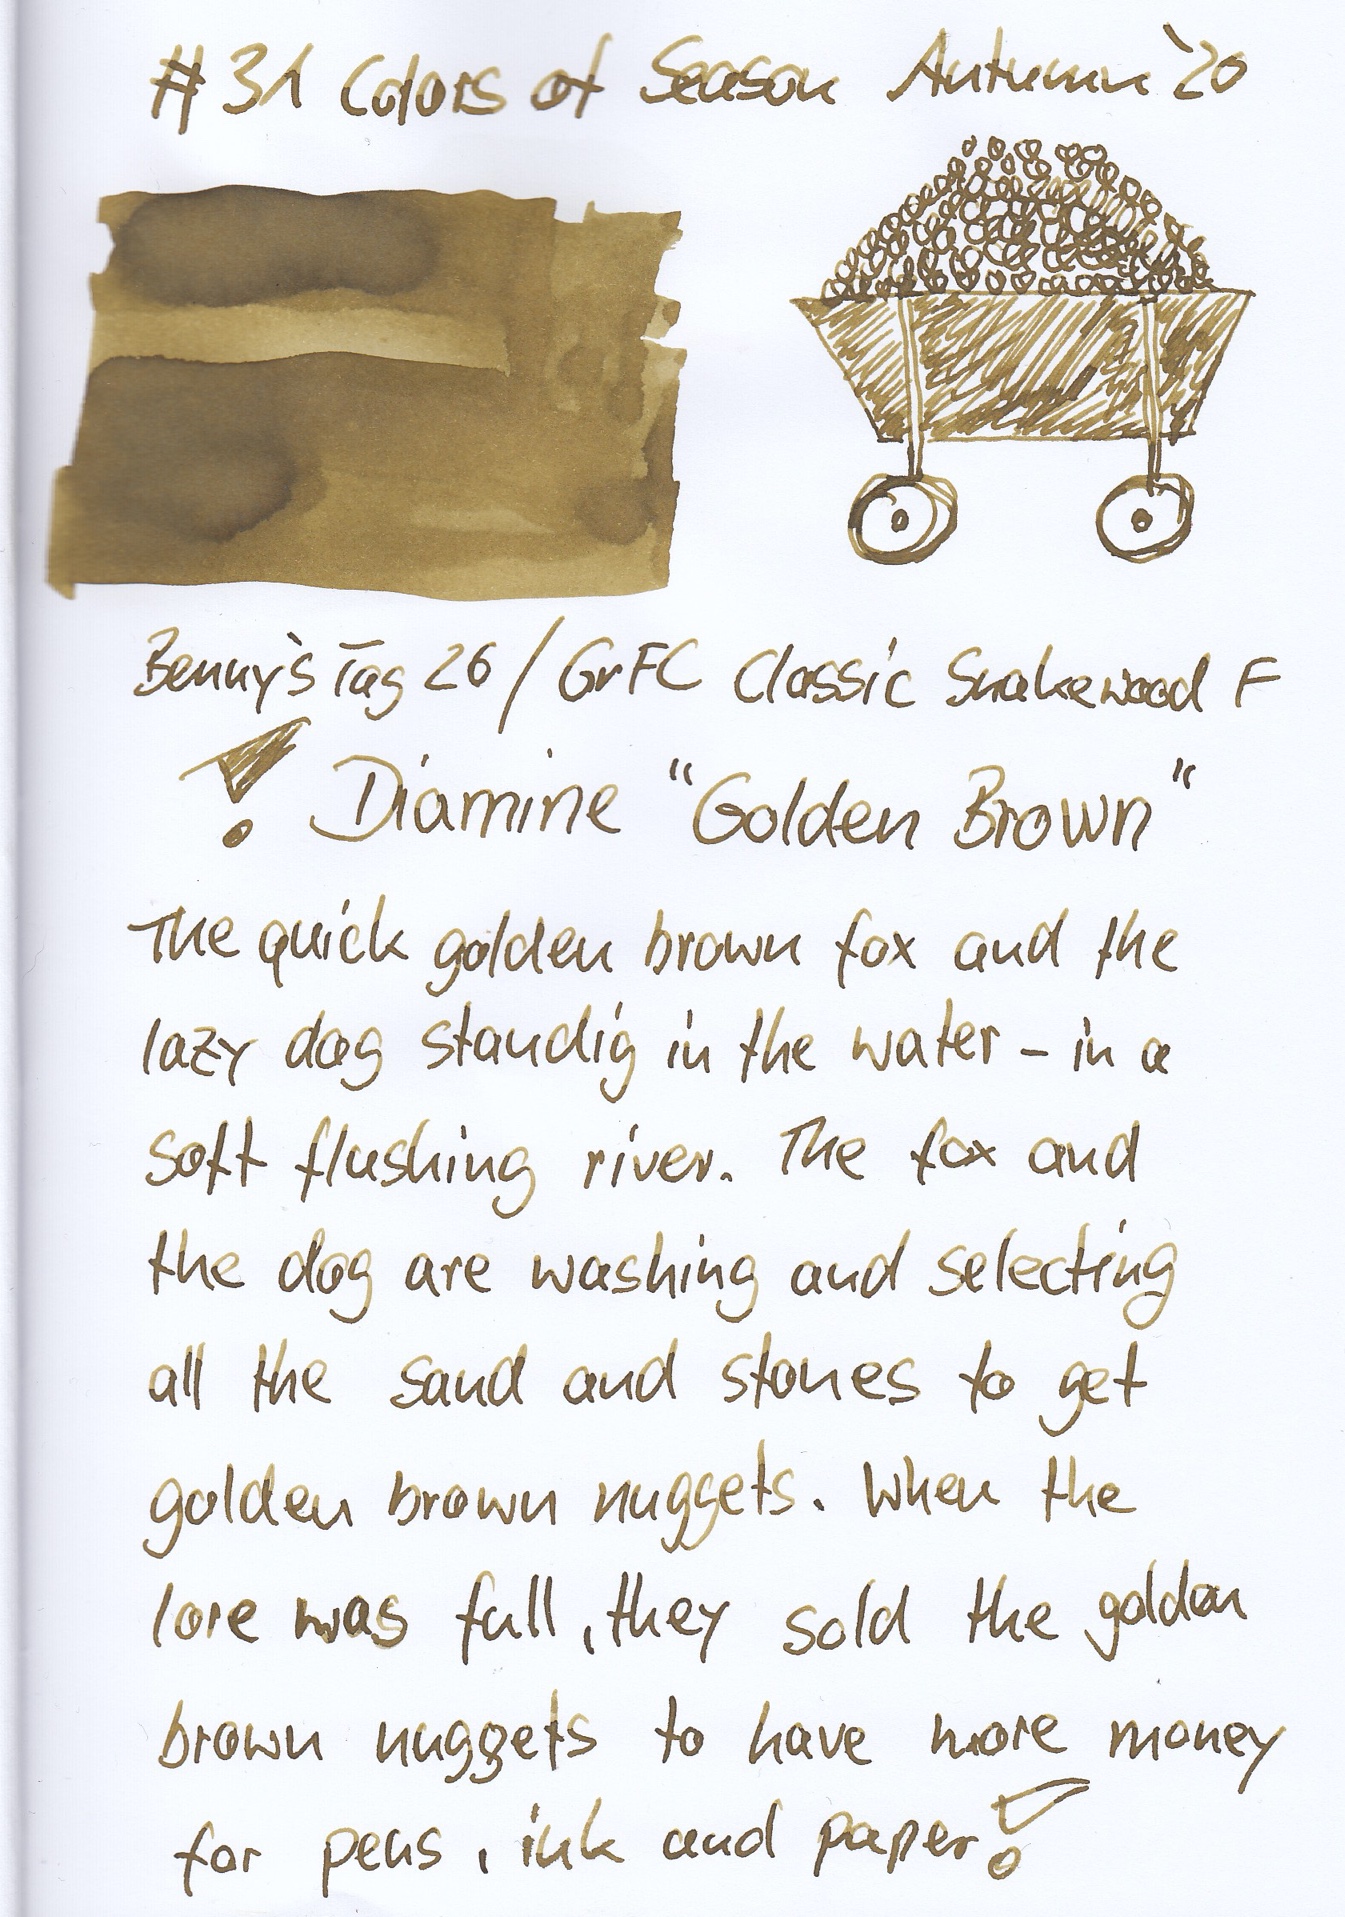 # 31 Colors of Season Autumn `20
Benny`s Tag 26 / GvFC Classic Snakewood F
! Diamine “Golden Brown“
The quick golden brown fox and the
lazy dog standig in the water – in a
soft flushing river. The fox and
the dog are washing and selecting
all the sand and stones to get
golden brown nuggets. When the
lore was full, they sold the golden
brown nuggets to have more money
for pens, ink and paper!